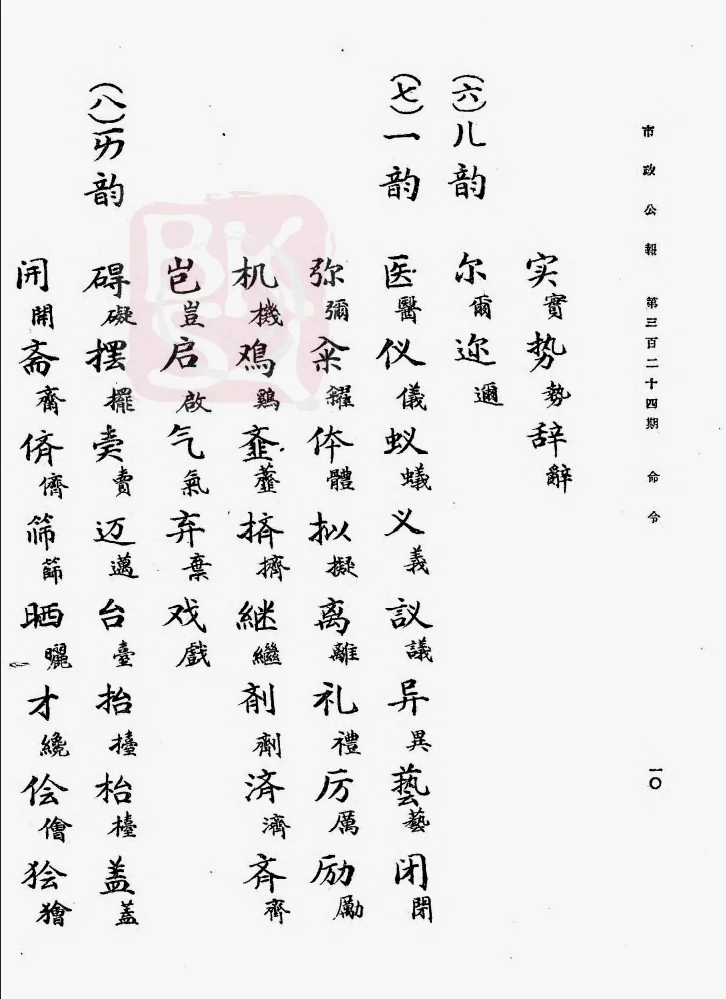 市政公報　第三百二十四期　命令　一〇
实實 势勢 辞辭
(六)ㄦ韵 尔爾 迩邇
(七)一韵 医醫 仪儀 蚁蟻 义義 議議 异異 藝藝 闭閉
弥彌 籴糴 体體 拟擬 离離 礼禮 厉厲 励勵
机機 鸡鷄 齑虀 挤擠 継繼 剤劑 済濟 斉齊
岂豈 启啟 气氣 弃棄 戏戲
(八)ㄞ韵 碍礙 摆擺 卖賣 迈邁 台臺 抬擡 枱檯 盖蓋
开開 斋齋 侪儕 筛篩 晒曬 才纔 侩儈 狯獪